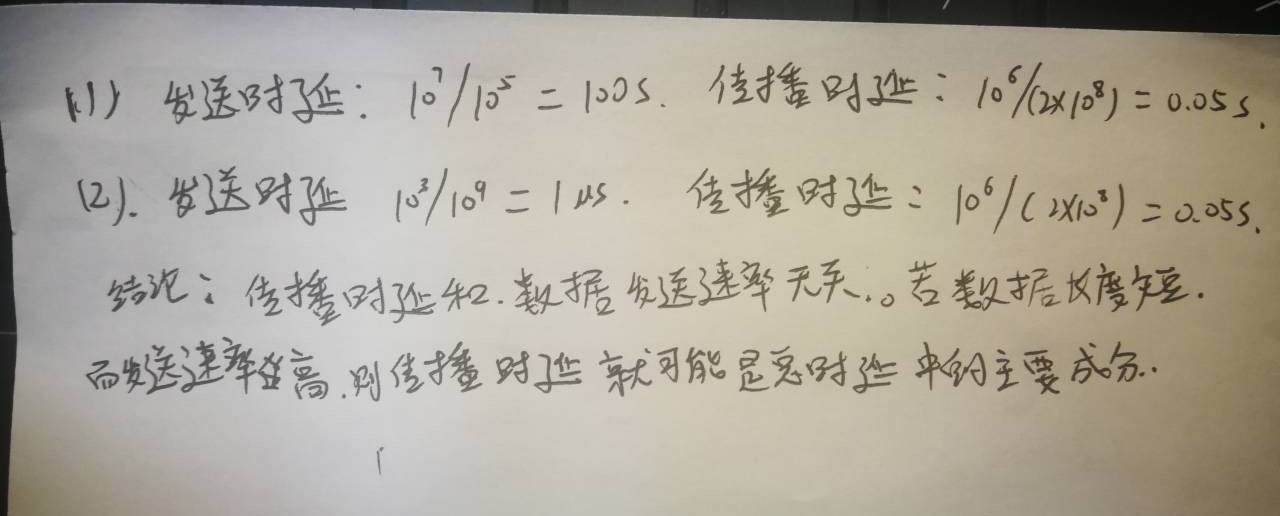 (1) 发送时延: 10⁷/10⁵ = 100s. 传播时延: 10⁶/(2×10⁸) = 0.05s.
(2). 发送时延 10³/10⁹ = 1μs. 传播时延: 10⁶/(2×10⁸) = 0.05s.
结论: 传播时延和.数据发送速率无关.。若数据长度短.
而发送速率高.则传播时延就可能是总时延中的主要成分..